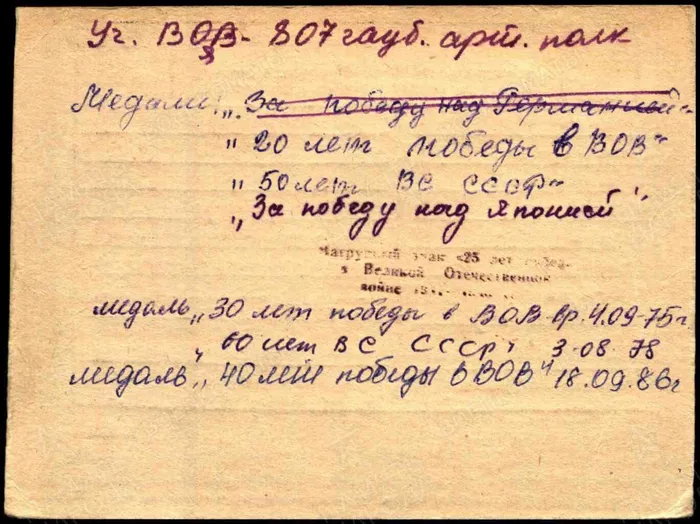 Уч. ВОВ - 807 гауб. арт. полк
Я
Медали: „За победу над Германией“
„20 лет победы в ВОВ“
„50 лет ВС СССР“
„За победу над Японией“
Нагрудный знак «25 лет победы
в Великой Отечественной
войне
медаль „30 лет победы в ВОВ вр. 4.09-75г
„60 лет ВС СССР“ 3-08-78
медаль „40 лет победы в ВОВ“ 18.09.86г